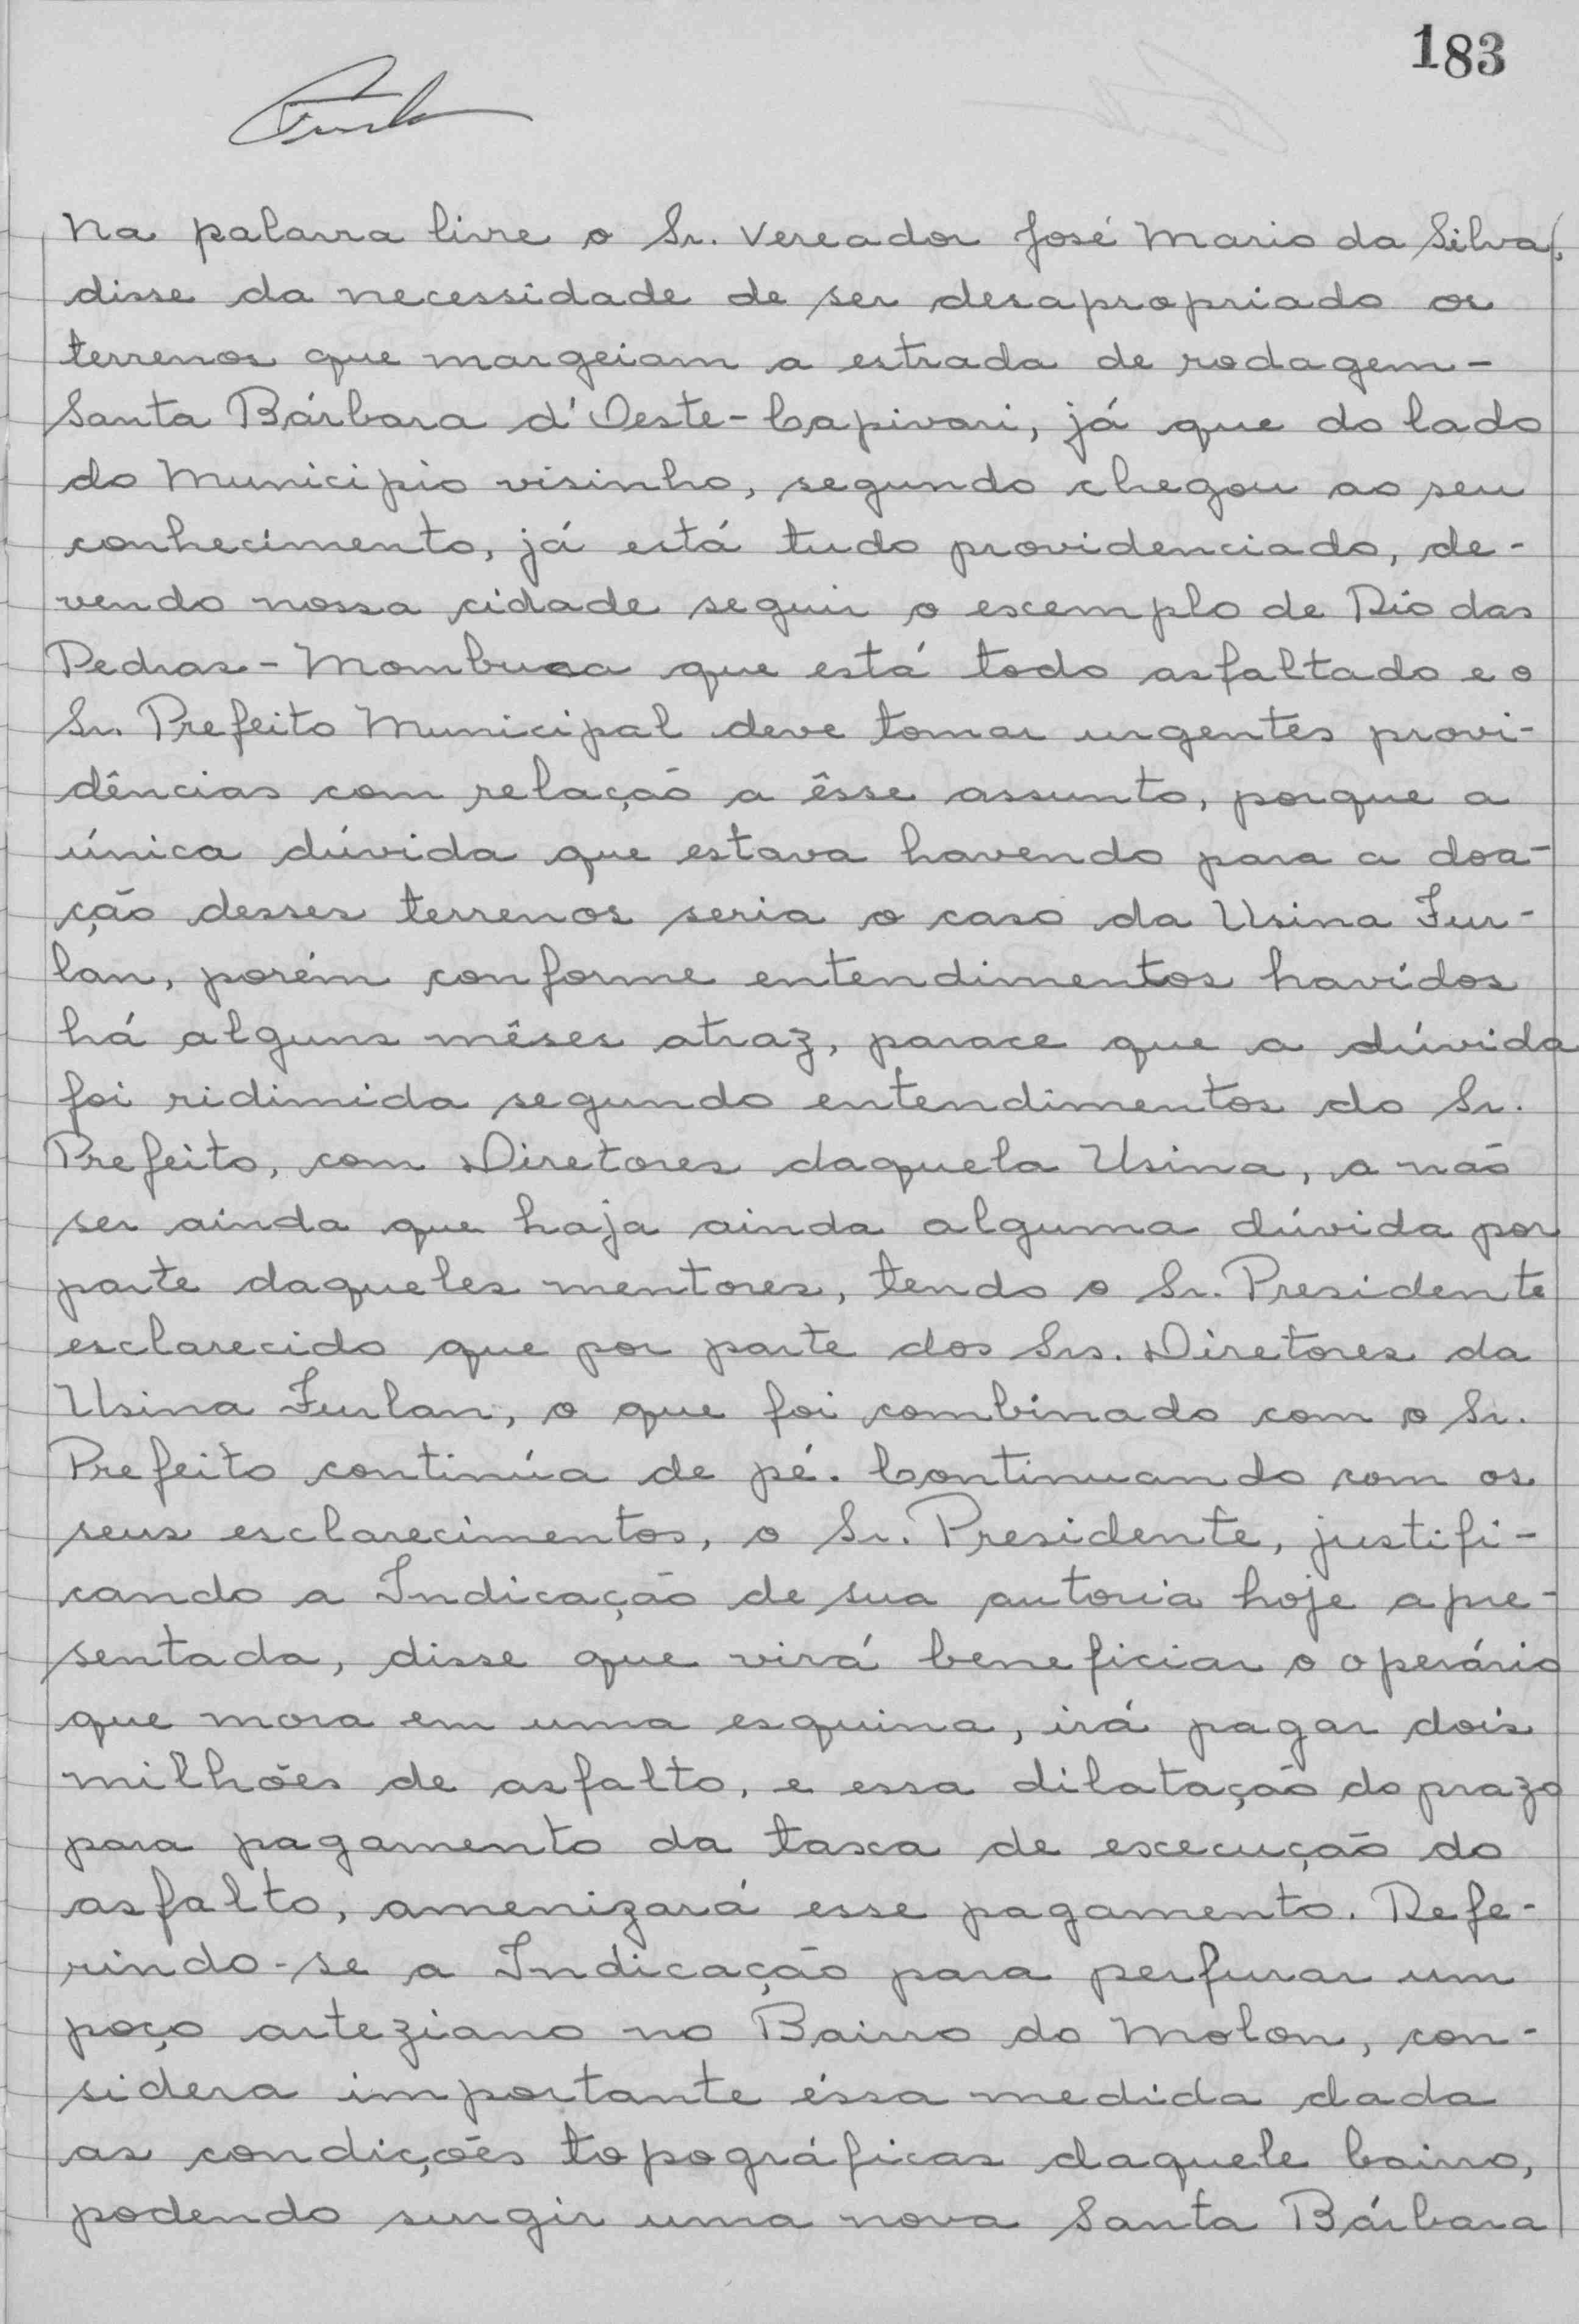 183
Na palavra livre o Sr. Vereador José Mario da Silva,
disse da necessidade de ser desapropriado os
terrenos que margeiam a estrada de rodagem-
Santa Bárbara d'Oeste-Capivari, já que do lado
do Municipio visinho, segundo chegou ao seu
conhecimento, já está tudo providenciado, de-
vendo nossa cidade seguir o exemplo de Rio das
Pedras-Mombuca que está todo asfaltado e o
Sr. Prefeito Municipal deve tomar urgentes provi-
dências com relação a êsse assunto, porque a
única dúvida que estava havendo para a doa-
ção desses terrenos seria o caso da Usina Fur-
lan, porém conforme entendimentos havidos
há alguns mêses atraz, parace que a dúvida
foi ridimida segundo entendimentos do Sr.
Prefeito, com Diretores daquela Usina, a não
ser ainda que haja ainda alguma dúvida por
parte daqueles mentores, tendo o Sr. Presidente
esclarecido que por parte dos Srs. Diretores da
Usina Furlan, o que foi combinado com o Sr.
Prefeito continúa de pé. Continuando com os
seus esclarecimentos, o Sr. Presidente, justifi-
cando a Indicação de sua autoria hoje apre-
sentada, disse que virá beneficiar o operário
que mora em uma esquina, irá pagar dois
milhões de asfalto, e essa dilatação do prazo
para pagamento da taxa de execução do
asfalto, amenizará esse pagamento. Refe-
rindo-se a Indicação para perfurar um
poço arteziano no Bairro do Molon, con-
sidera importante éssa medida dada
as condições topográficas daquele bairro,
podendo surgir uma nova Santa Bárbara